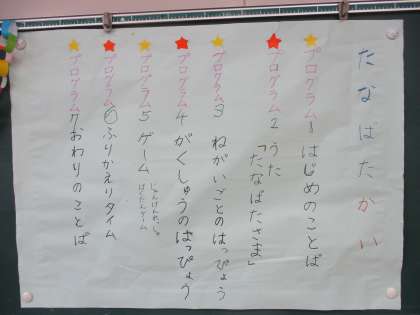 たなばたかい
プログラム1 はじめのことば
プログラム2 うた
「たなばたさま」
プログラム3 ねがいごとのはっぴょう
プログラム4 がくしゅうのはっぴょう
プログラム5 ゲーム
じゃんけんれっしゃ
ばくだんゲーム
プログラム⑥ふりかえりタイム
プログラム7おわりのことば